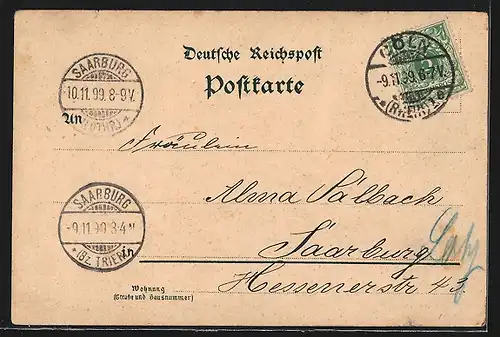 Deutsche Reichspost
Postkarte
CÖLN
-9.11.99.6-7V.
SAARBURG
10.11.99.8-9V.
An
Fräulein
Alma Salbach
SAARBURG
-9.11.99.3-4N
*(Bz. TRIER)
in
Saarburg
Hessenerstr 43.
Wohnung
(Straße und Hausnummer)